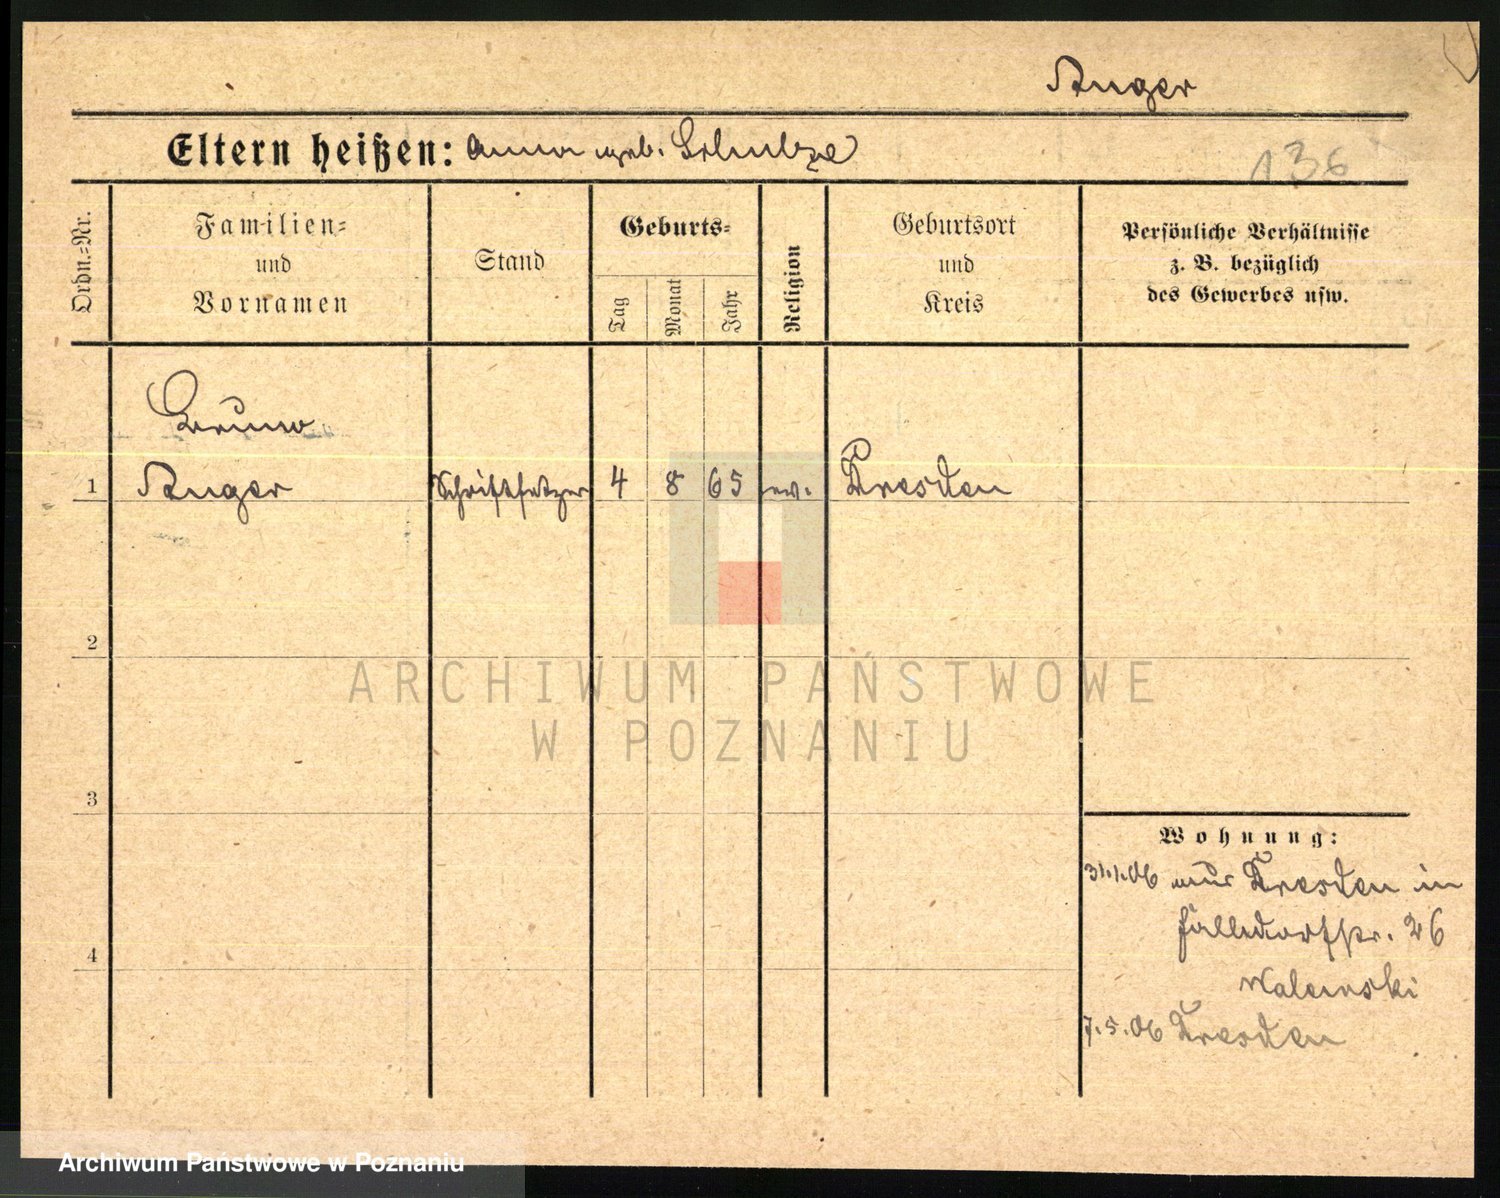 Anger
Eltern heißen: Anna geb. Schulze
136
Ordn.=Nr.
Familien=
und
Vornamen
Stand
Geburts=
Tag
Monat
Jahr
Religion
Geburtsort
und
Kreis
Persönliche Verhältnisse
z. B. bezüglich
des Gewerbes usw.
Bruno
1 Anger Schriftsetzer 4 8 65 ev. Dresden
2
ARCHIWUM PAŃSTWOWE
W POZNANIU
3
Wohnung:
31.1.06 aus Dresden in
26
4
7.5.06 Dresden
Archiwum Państwowe w Poznaniu